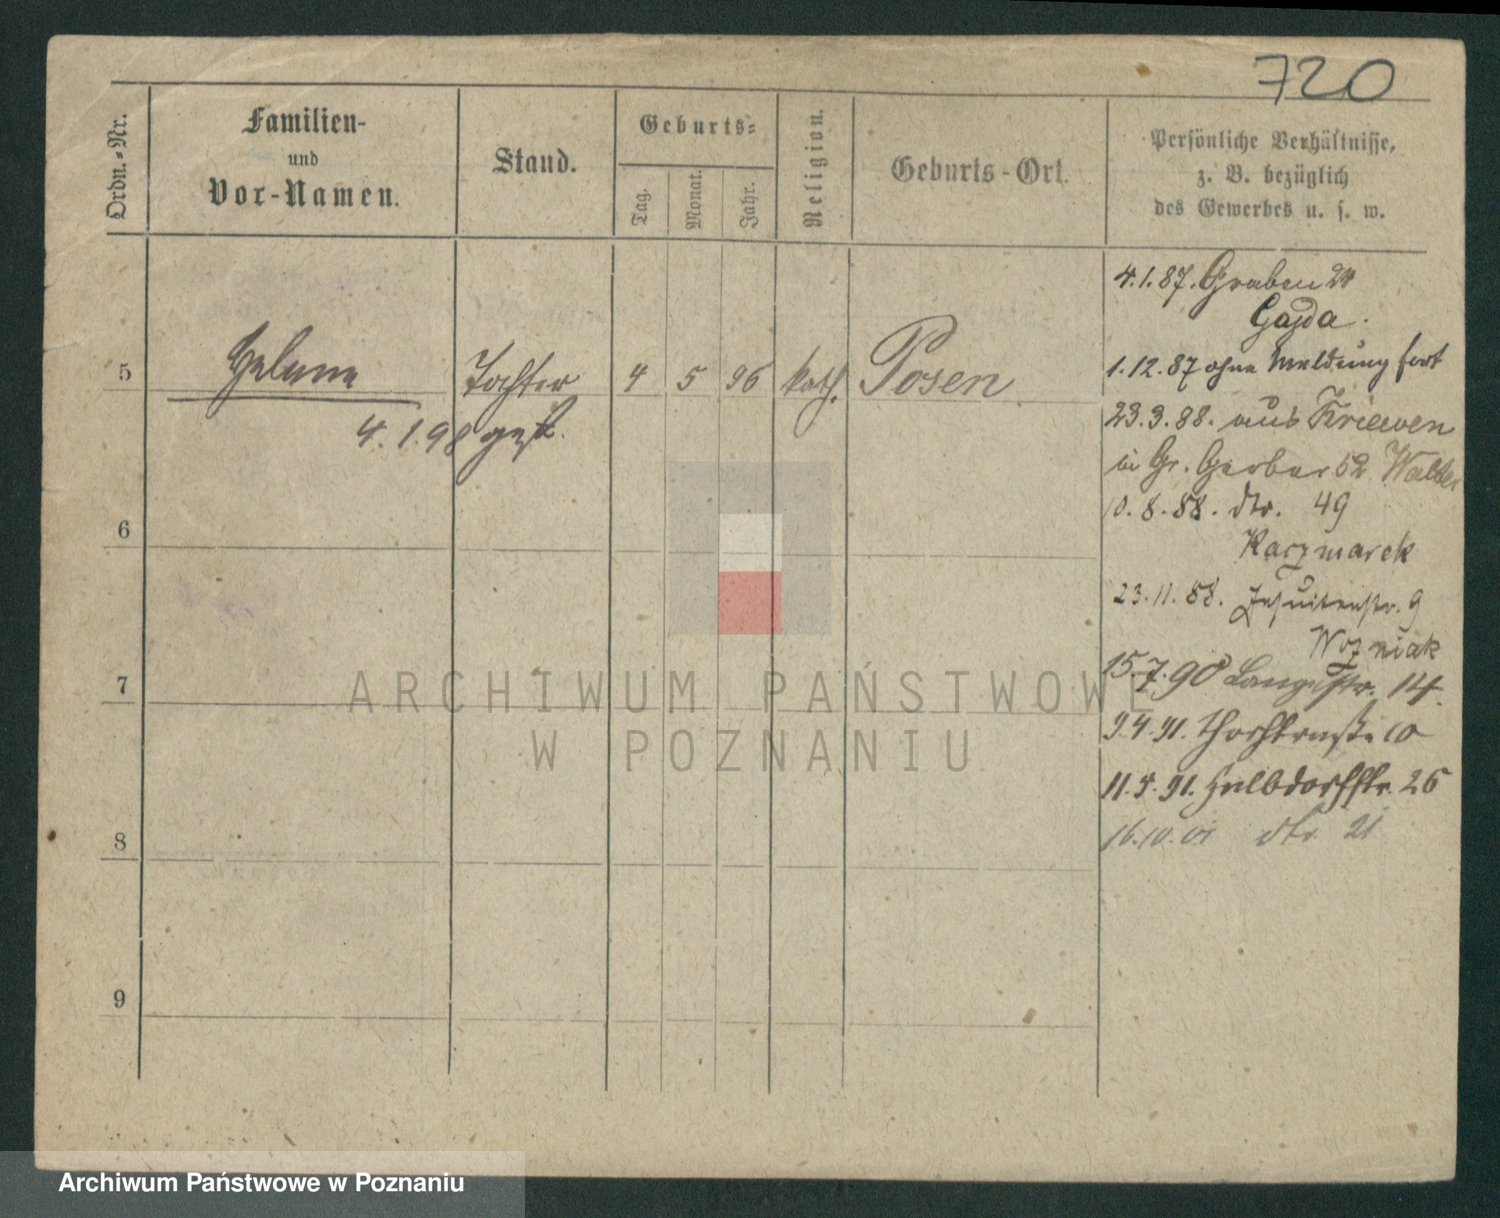 720
Ordn.-Nr.
Familien-
und
Vor-Namen.
Stand.
Geburts-
Tag.
Monat.
Jahr.
Religion.
Geburts-Ort.
Persönliche Verhältnisse,
z. B. bezüglich
des Gewerbes u. s. w.
4.1.87. Graben 24
Gajda.
1.12.87 ohne Meldung fort
5 Helene Tochter 4 5 96 kath. Posen
4.1.98 gest.
23.3.88. aus Kriewen
in Gr. Gerber 52 Walter
10.8.88. dto. 49
Kaczmarek
6
23.11.88. Jesuitenstr. 9
Wozniak
7
15.7.90 Langestr. 14.
9.4.91. Thorstraße 10
11.4.91. Halbdorfstr. 26
16.10.01 dto. 21
8
9
ARCHIWUM PAŃSTWOWE
W POZNANIU
Archiwum Państwowe w Poznaniu